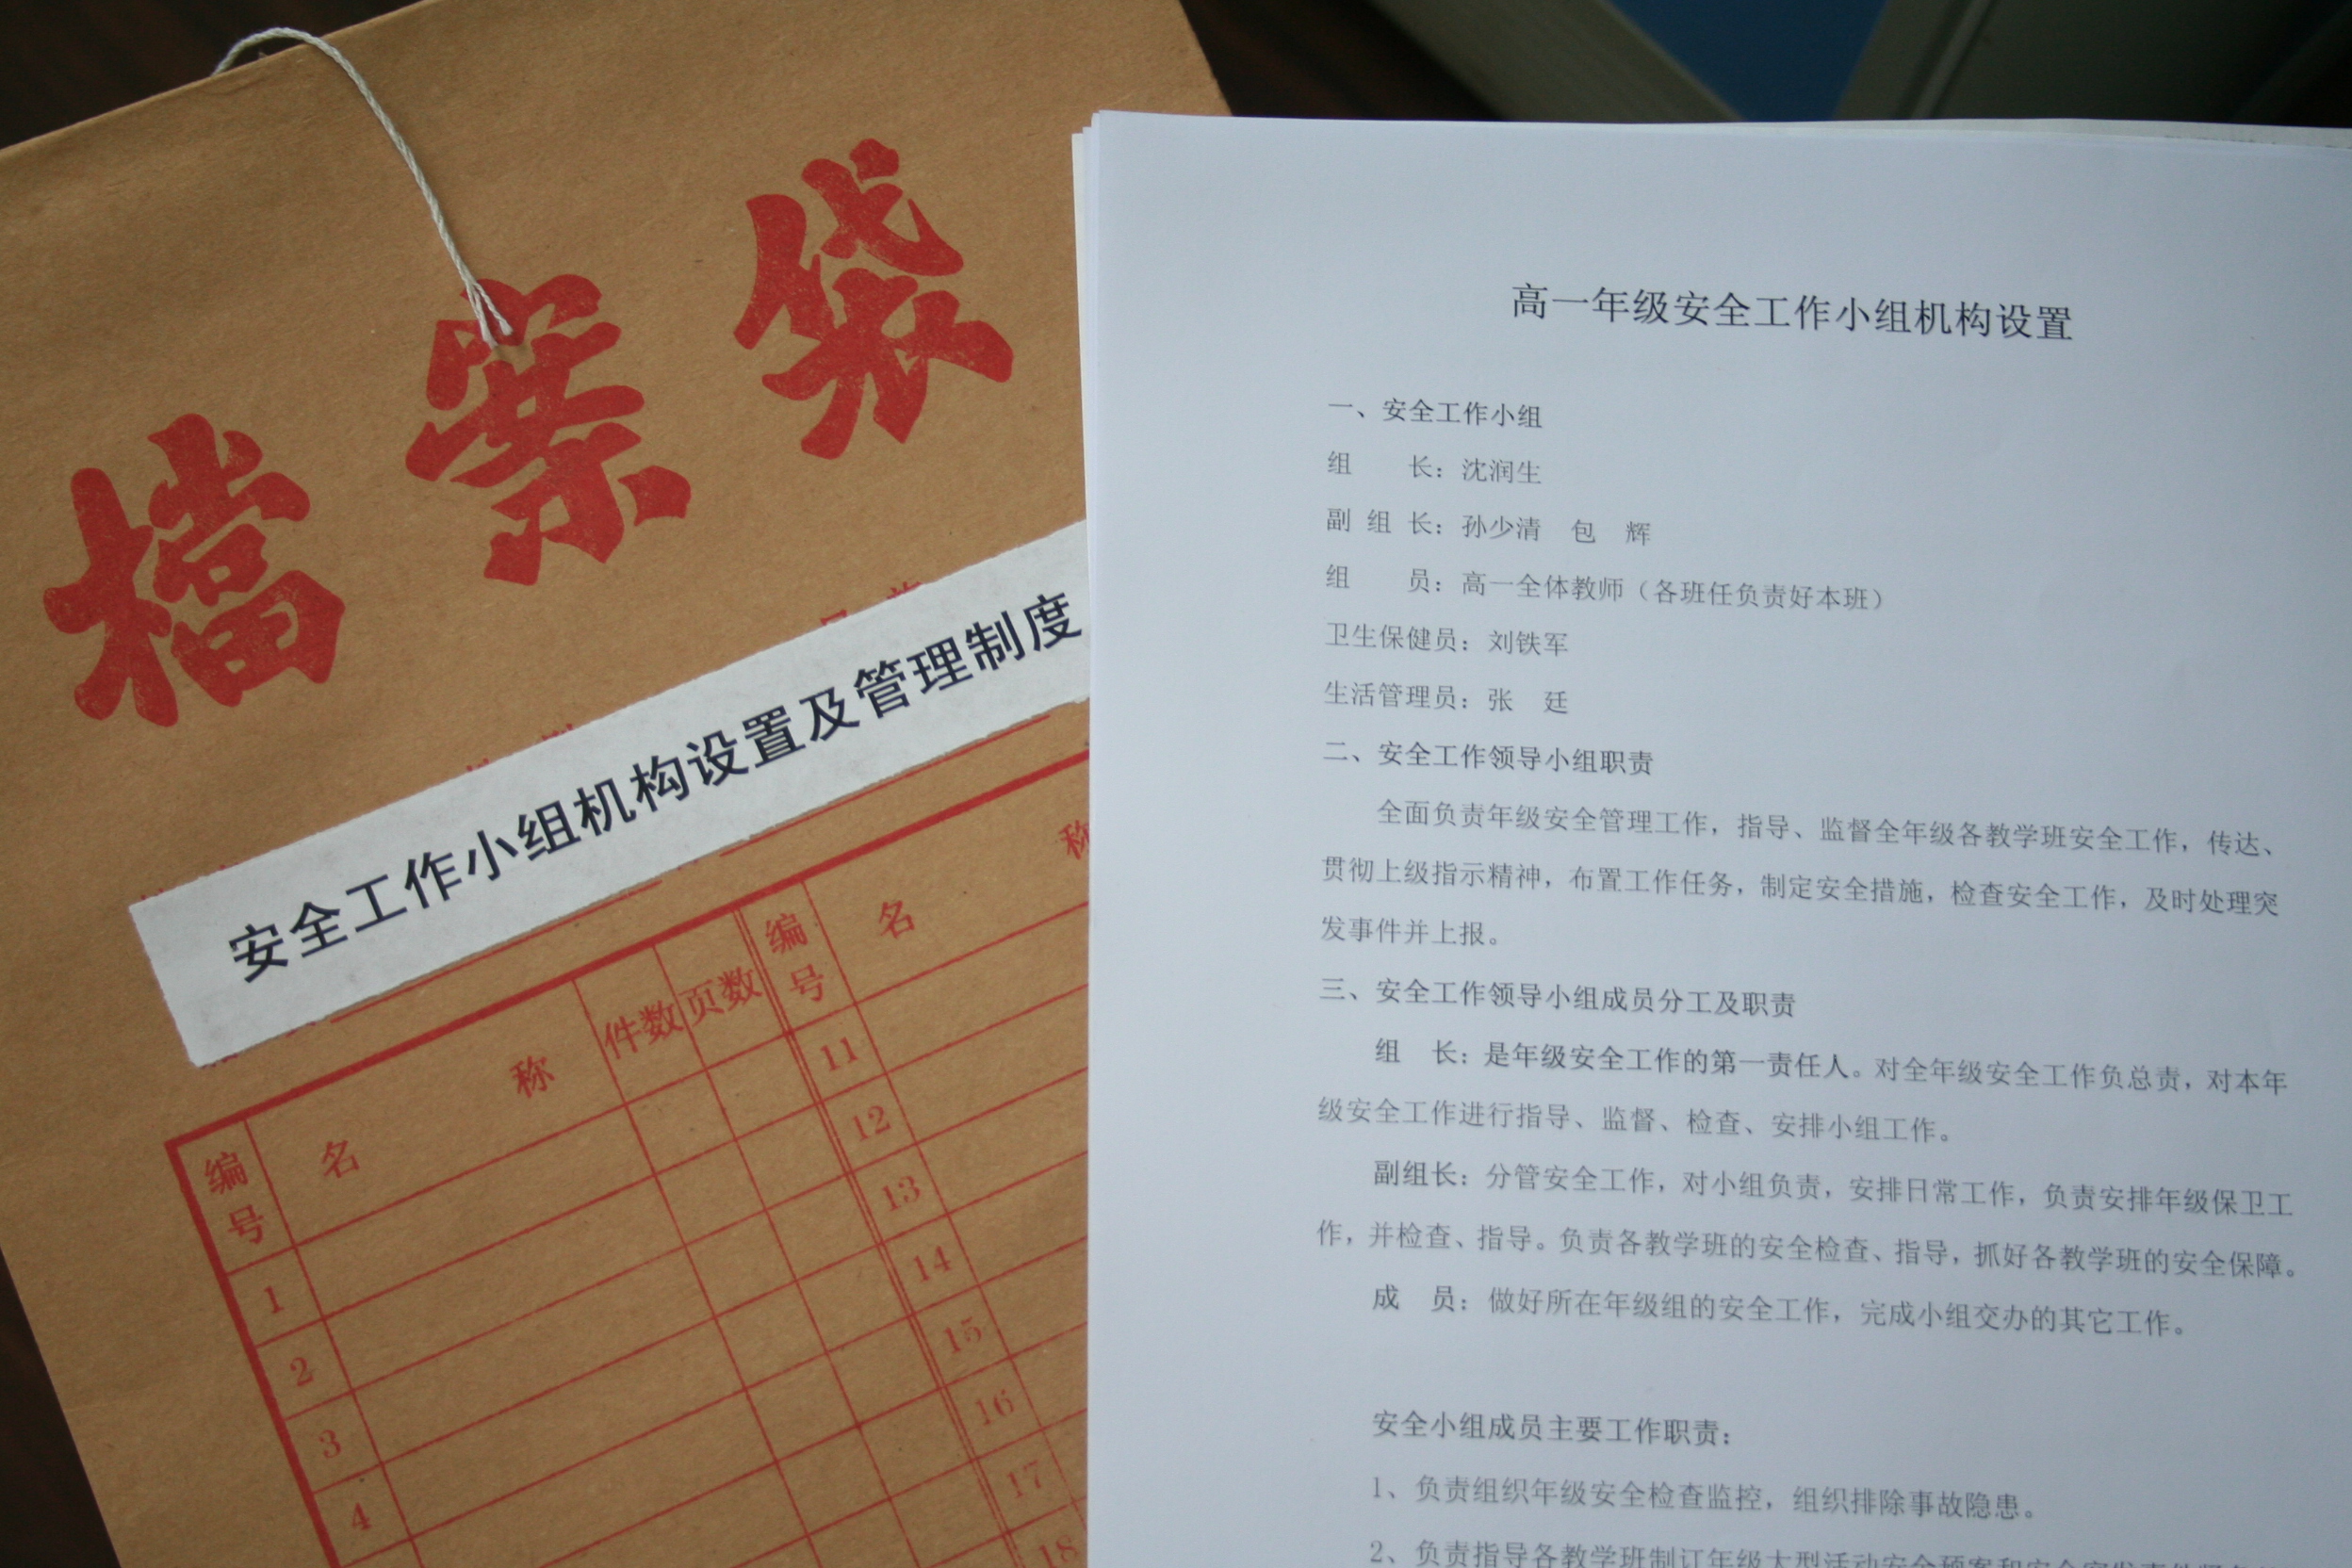 檔案袋
安全工作小组机构设置及管理制度
编号 名 称 件数 页数 编号 名 称
1
2
3
4
11
12
13
14
15
16
17
18
高一年级安全工作小组机构设置
一、安全工作小组
组 长：沈润生
副 组 长：孙少清 包 辉
组 员：高一全体教师（各班任负责好本班）
卫生保健员：刘铁军
生活管理员：张 廷
二、安全工作领导小组职责
全面负责年级安全管理工作，指导、监督全年级各教学班安全工作，传达、
贯彻上级指示精神，布置工作任务，制定安全措施，检查安全工作，及时处理突
发事件并上报。
三、安全工作领导小组成员分工及职责
组 长：是年级安全工作的第一责任人。对全年级安全工作负总责，对本年
级安全工作进行指导、监督、检查、安排小组工作。
副组长：分管安全工作，对小组负责，安排日常工作，负责安排年级保卫工
作，并检查、指导。负责各教学班的安全检查、指导，抓好各教学班的安全保障。
成 员：做好所在年级组的安全工作，完成小组交办的其它工作。
安全小组成员主要工作职责：
1、负责组织年级安全检查监控，组织排除事故隐患。
2、负责指导各教学班制订年级大型活动安全预案和安全突发事件